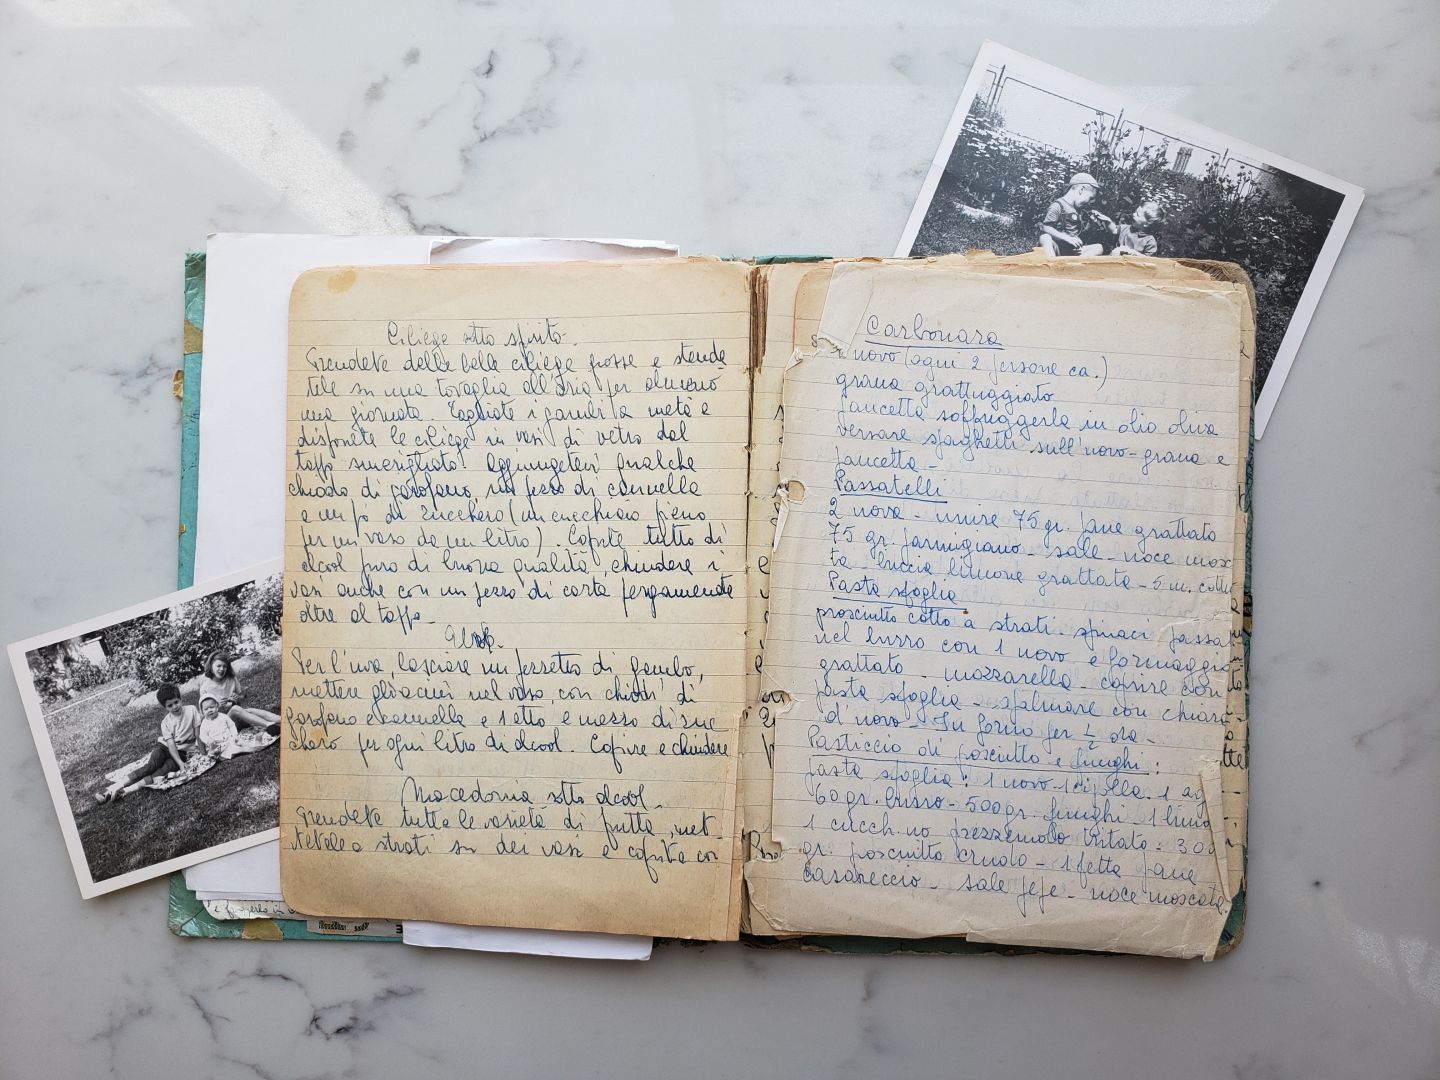 Ciliege sotto spirito.
Prendete delle belle ciliege grosse e stende
tele su una tovaglia all'aria per almeno
una giornata. Tagliate i gambi a metà e
disponete le ciliege in vasi di vetro dal
tappo smerigliato. Aggiungetevi qualche
chiodo di garofano, un pezzo di cannella
e un pò di zucchero (un cucchiaio pieno
per un vaso da un litro). Coprite tutto di
alcool puro di buona qualità, chiudere i
vasi anche con un pezzo di carta pergamenata
oltre al tappo.
Uva.
Per l'uva lasciare un pezzetto di gambo,
mettere gli acini nel vaso, con chiodi di
garofano e cannella e 1 etto e mezzo di zuc
chero per ogni litro di alcool. Coprire e chiudere
Macedonia sotto alcool.
Prendete tutte le varietà di frutta, met-
tetele a strati su dei vasi e coprite con
Carbonara
uovo (ogni 2 persone ca.)
grana grattuggiato
pancetta soffriggerla in olio oliva
versare spaghetti sull'uovo-grana e
pancetta -
Passatelli
2 uova - unire 75 gr. pane grattato
75 gr. parmigiano - sale - noce mosca
ta - buccia limone grattata - 5 m. cottura
Pasta sfoglia
prosciutto cotto a strati. spinaci passati
nel burro con 1 uovo e formaggio
grattato - mozzarella - coprire con
pasta sfoglia - spalmare con chiaro
d'uovo - In forno per ½ ora -
Pasticcio di prosciutto e funghi:
pasta sfoglia: 1 uovo - 1 cipolla - 1 ag
60 gr. burro - 500 gr. funghi 1 limo
1 cucch.no prezzemolo tritato - 300
gr. prosciutto crudo - 1 fetta pane
casareccio - sale pepe - noce moscata